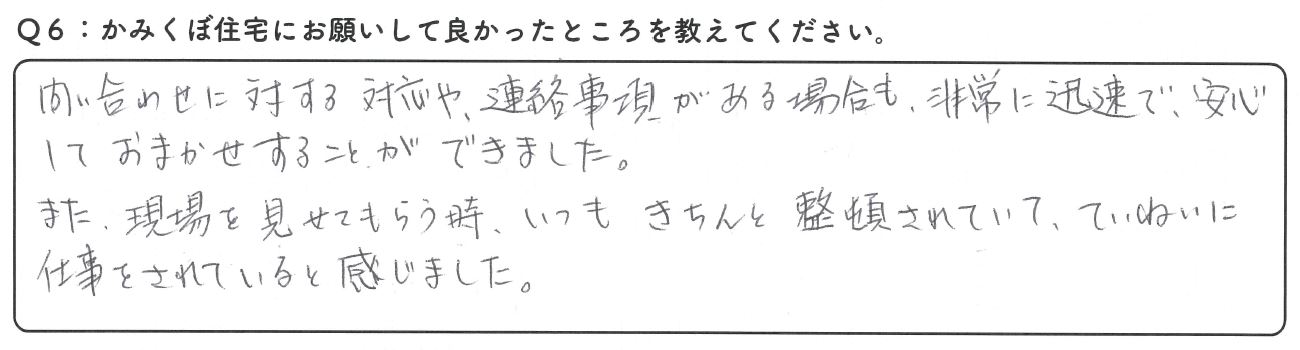 Q6：かみくぼ住宅にお願いして良かったところを教えてください。
問い合わせに対する対応や、連絡事項がある場合も、非常に迅速で、安心
しておまかせすることができました。
また、現場を見せてもらう時、いつもきちんと整頓されていて、ていねいに
仕事をされていると感じました。